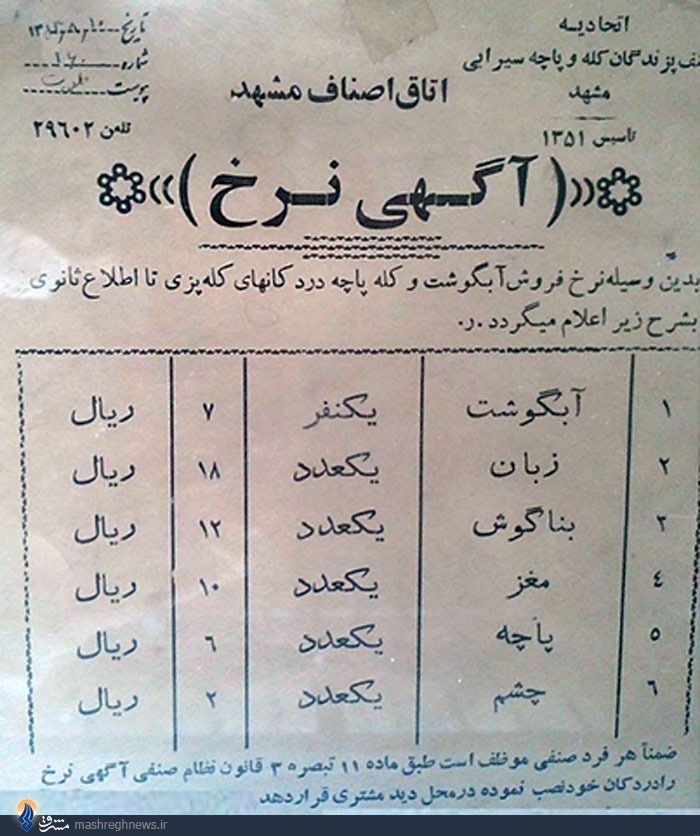 اتحادیه
صنف پزندگان کله و پاچه سیرابی
مشهد
تاسیس ۱۳۵۱
اتاق اصناف مشهد
تاریخ
شماره
پیوست
تلفن ۲۹۶۰۲
«(آگهی نرخ)»
بدین وسیله نرخ فروش آبگوشت و کله پاچه در دکانهای کله‌پزی تا اطلاع ثانوی
بشرح زیر اعلام میگردد .ر.
۱ آبگوشت یکنفر ۷ ریال
۲ زبان یکعدد ۱۸ ریال
۳ بناگوش یکعدد ۱۲ ریال
۴ مغز یکعدد ۱۰ ریال
۵ پاچه یکعدد ۶ ریال
۶ چشم یکعدد ۲ ریال
ضمناً هر فرد صنفی موظف است طبق ماده ۱۱ تبصره ۳ قانون نظام صنفی آگهی نرخ
را در دکان خود نصب نموده در محل دید مشتری قرار دهد
مشرق mashreghnews.ir